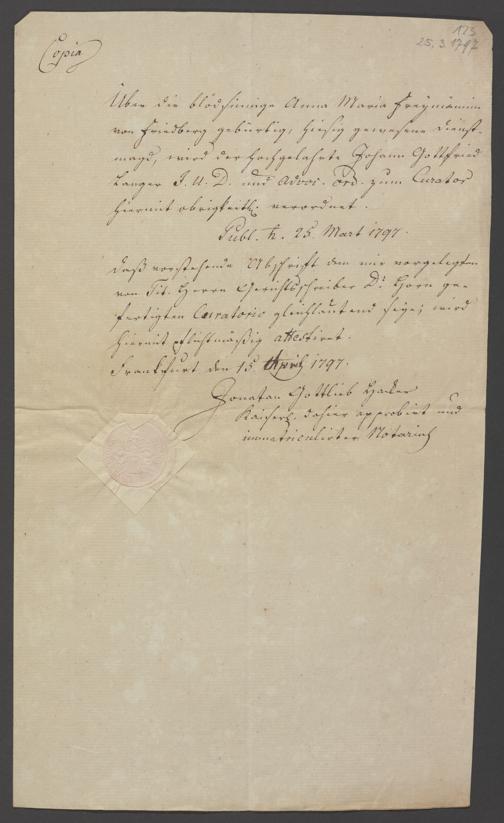 173
25.3.1797
Copia
Über die blödsinnige Anna Maria Freymännin
von Friedberg gebürtig, hiesig gewesene Dienst-
magd, wird der Hochgelahrte Johann Gottfried
Langer J. U. D. und Advoc. Ord. zum Curator
hiermit obrigkeitl. verordnet.
Publ. d. 25. Mart 1797.
Daß vorstehende Abschrift dem mir vorgelegten
von Tit. Herrn Gerichtsschreiber Dr. Horn ge-
fertigten Curatorio gleichlautend seye, wird
hiermit pflichtmäßig attestiret.
Frankfurt den 15 April 1797.
Jonatan Gottlieb
Kaiserl. dahier approbirt und
immatriculirter Notarius